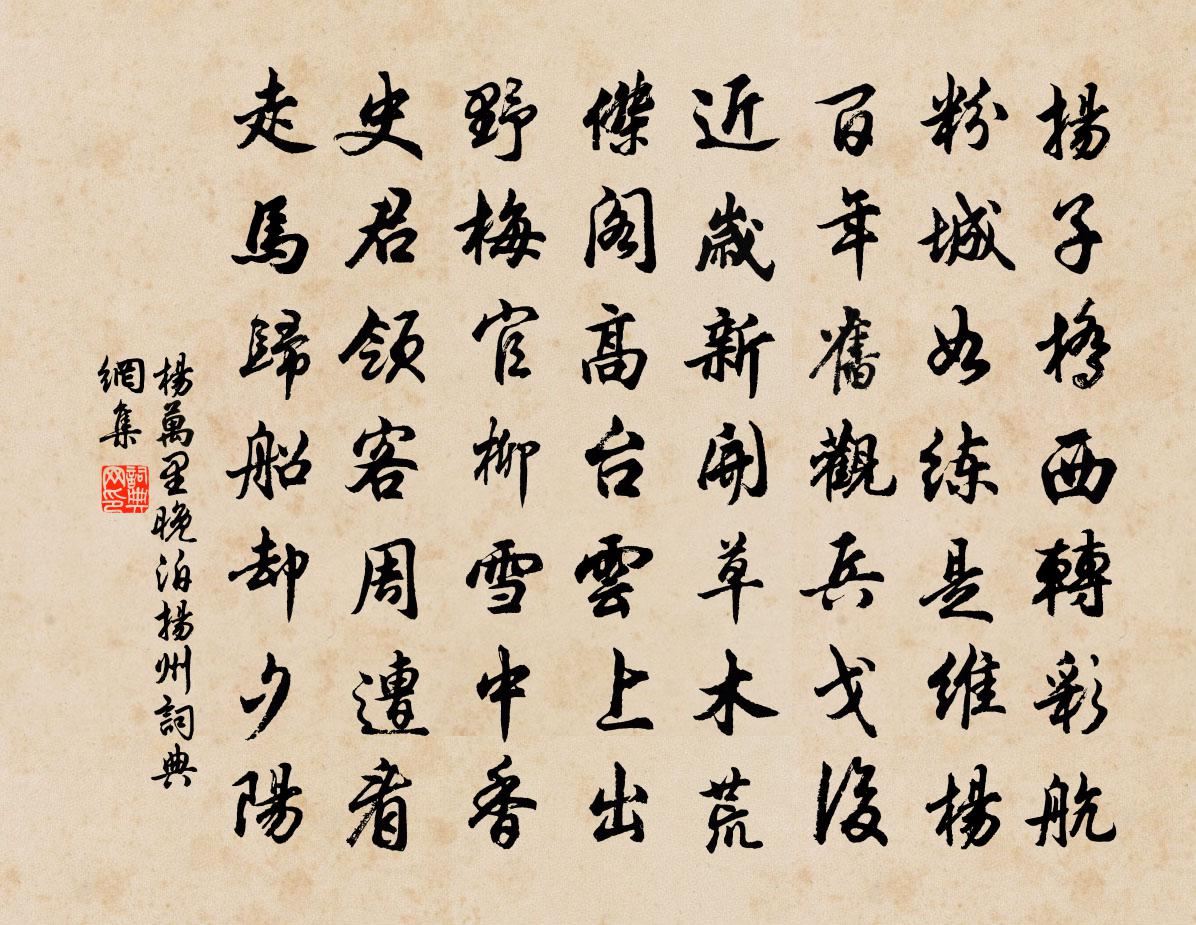 揚子橋西轉彩航
粉城如練是維楊
百年舊觀兵戈後
近歲新開草木荒
傑閣高台雲上出
野梅官柳雪中香
史君領客周遭看
走馬歸船却夕陽
楊萬里晚泊揚州詞典
網集
詞典
网印